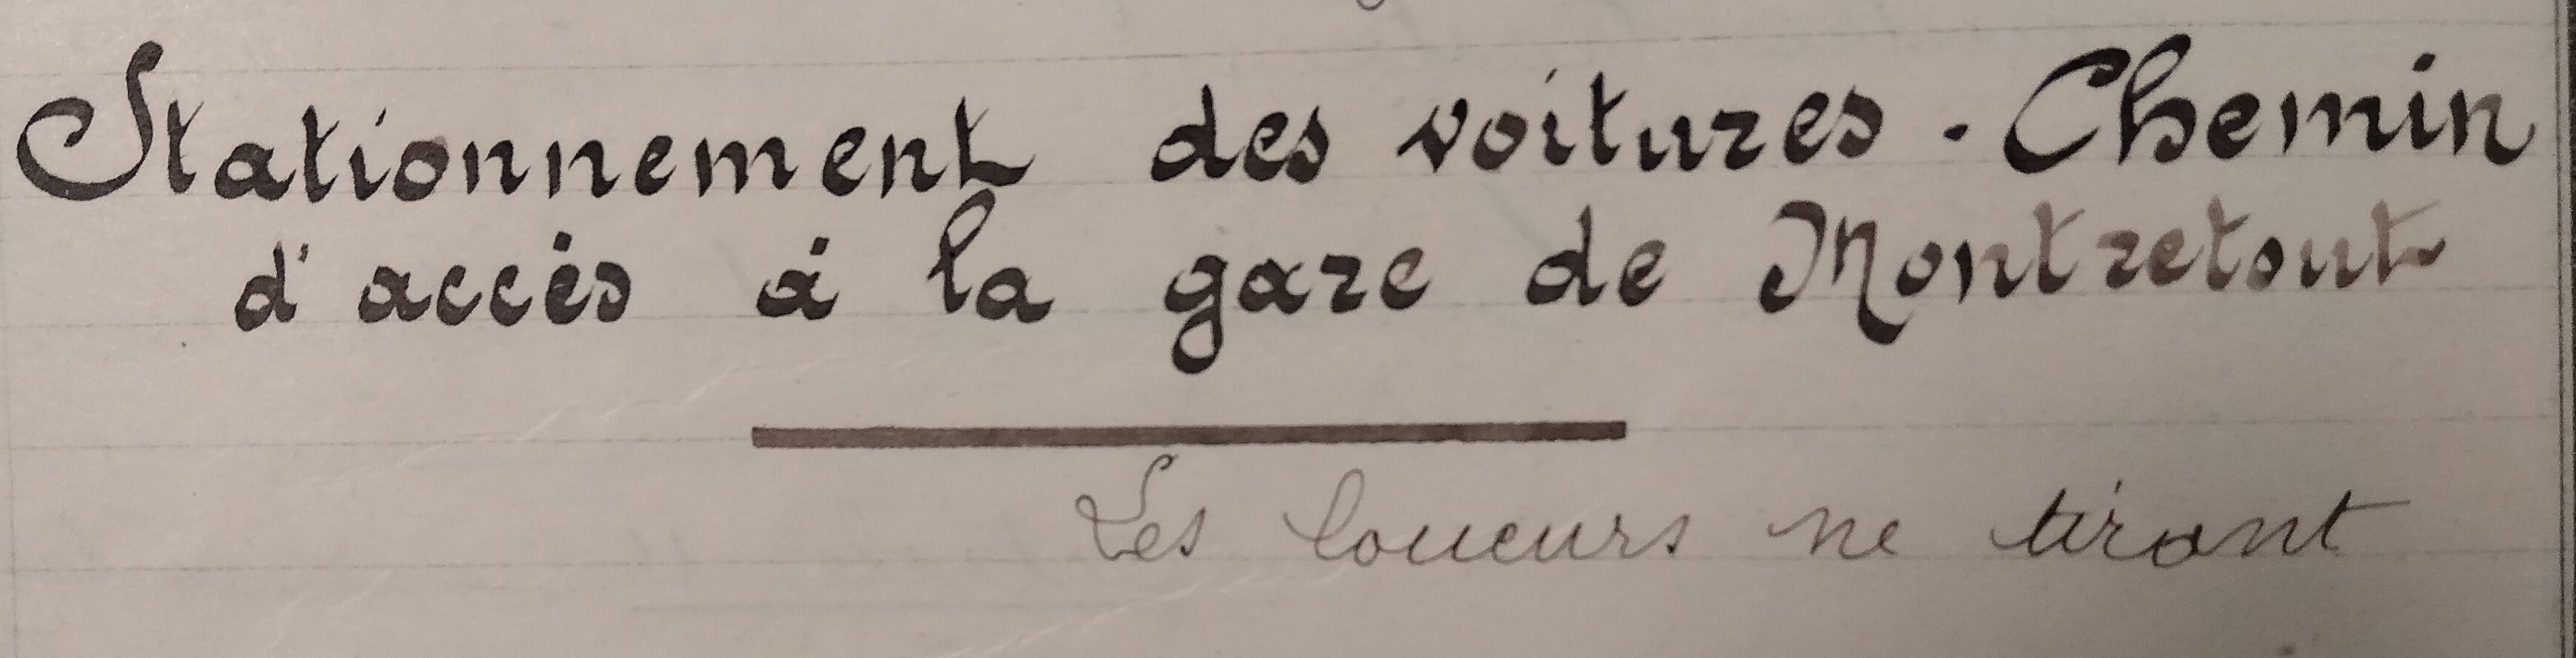 Stationnement des voitures. Chemin
d'accès à la gare de Montretout
Les loueurs ne tirant